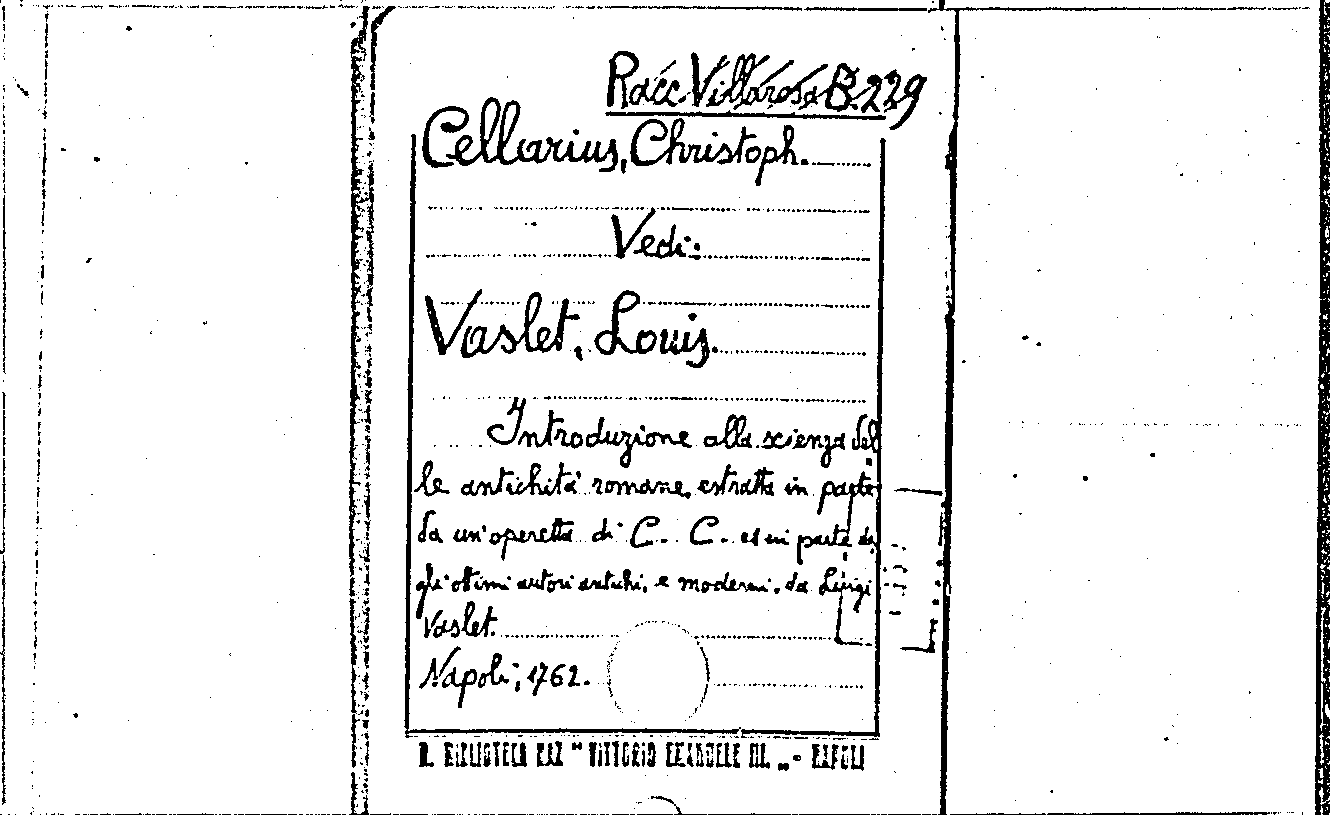 Racc. Villarosa B. 229
Cellarius, Christoph.
Vedi:
Vaslet, Louis.
Introduzione alla scienza del
le antichità romane, estratta in parte
da un'operetta di C. C. ed in parte da
gli ottimi autori antichi, e moderni, da Luigi
Vaslet.
Napoli, 1762.
R. BIBLIOTECA NAZ " VITTORIO EMANUELE III. „ - NAPOLI